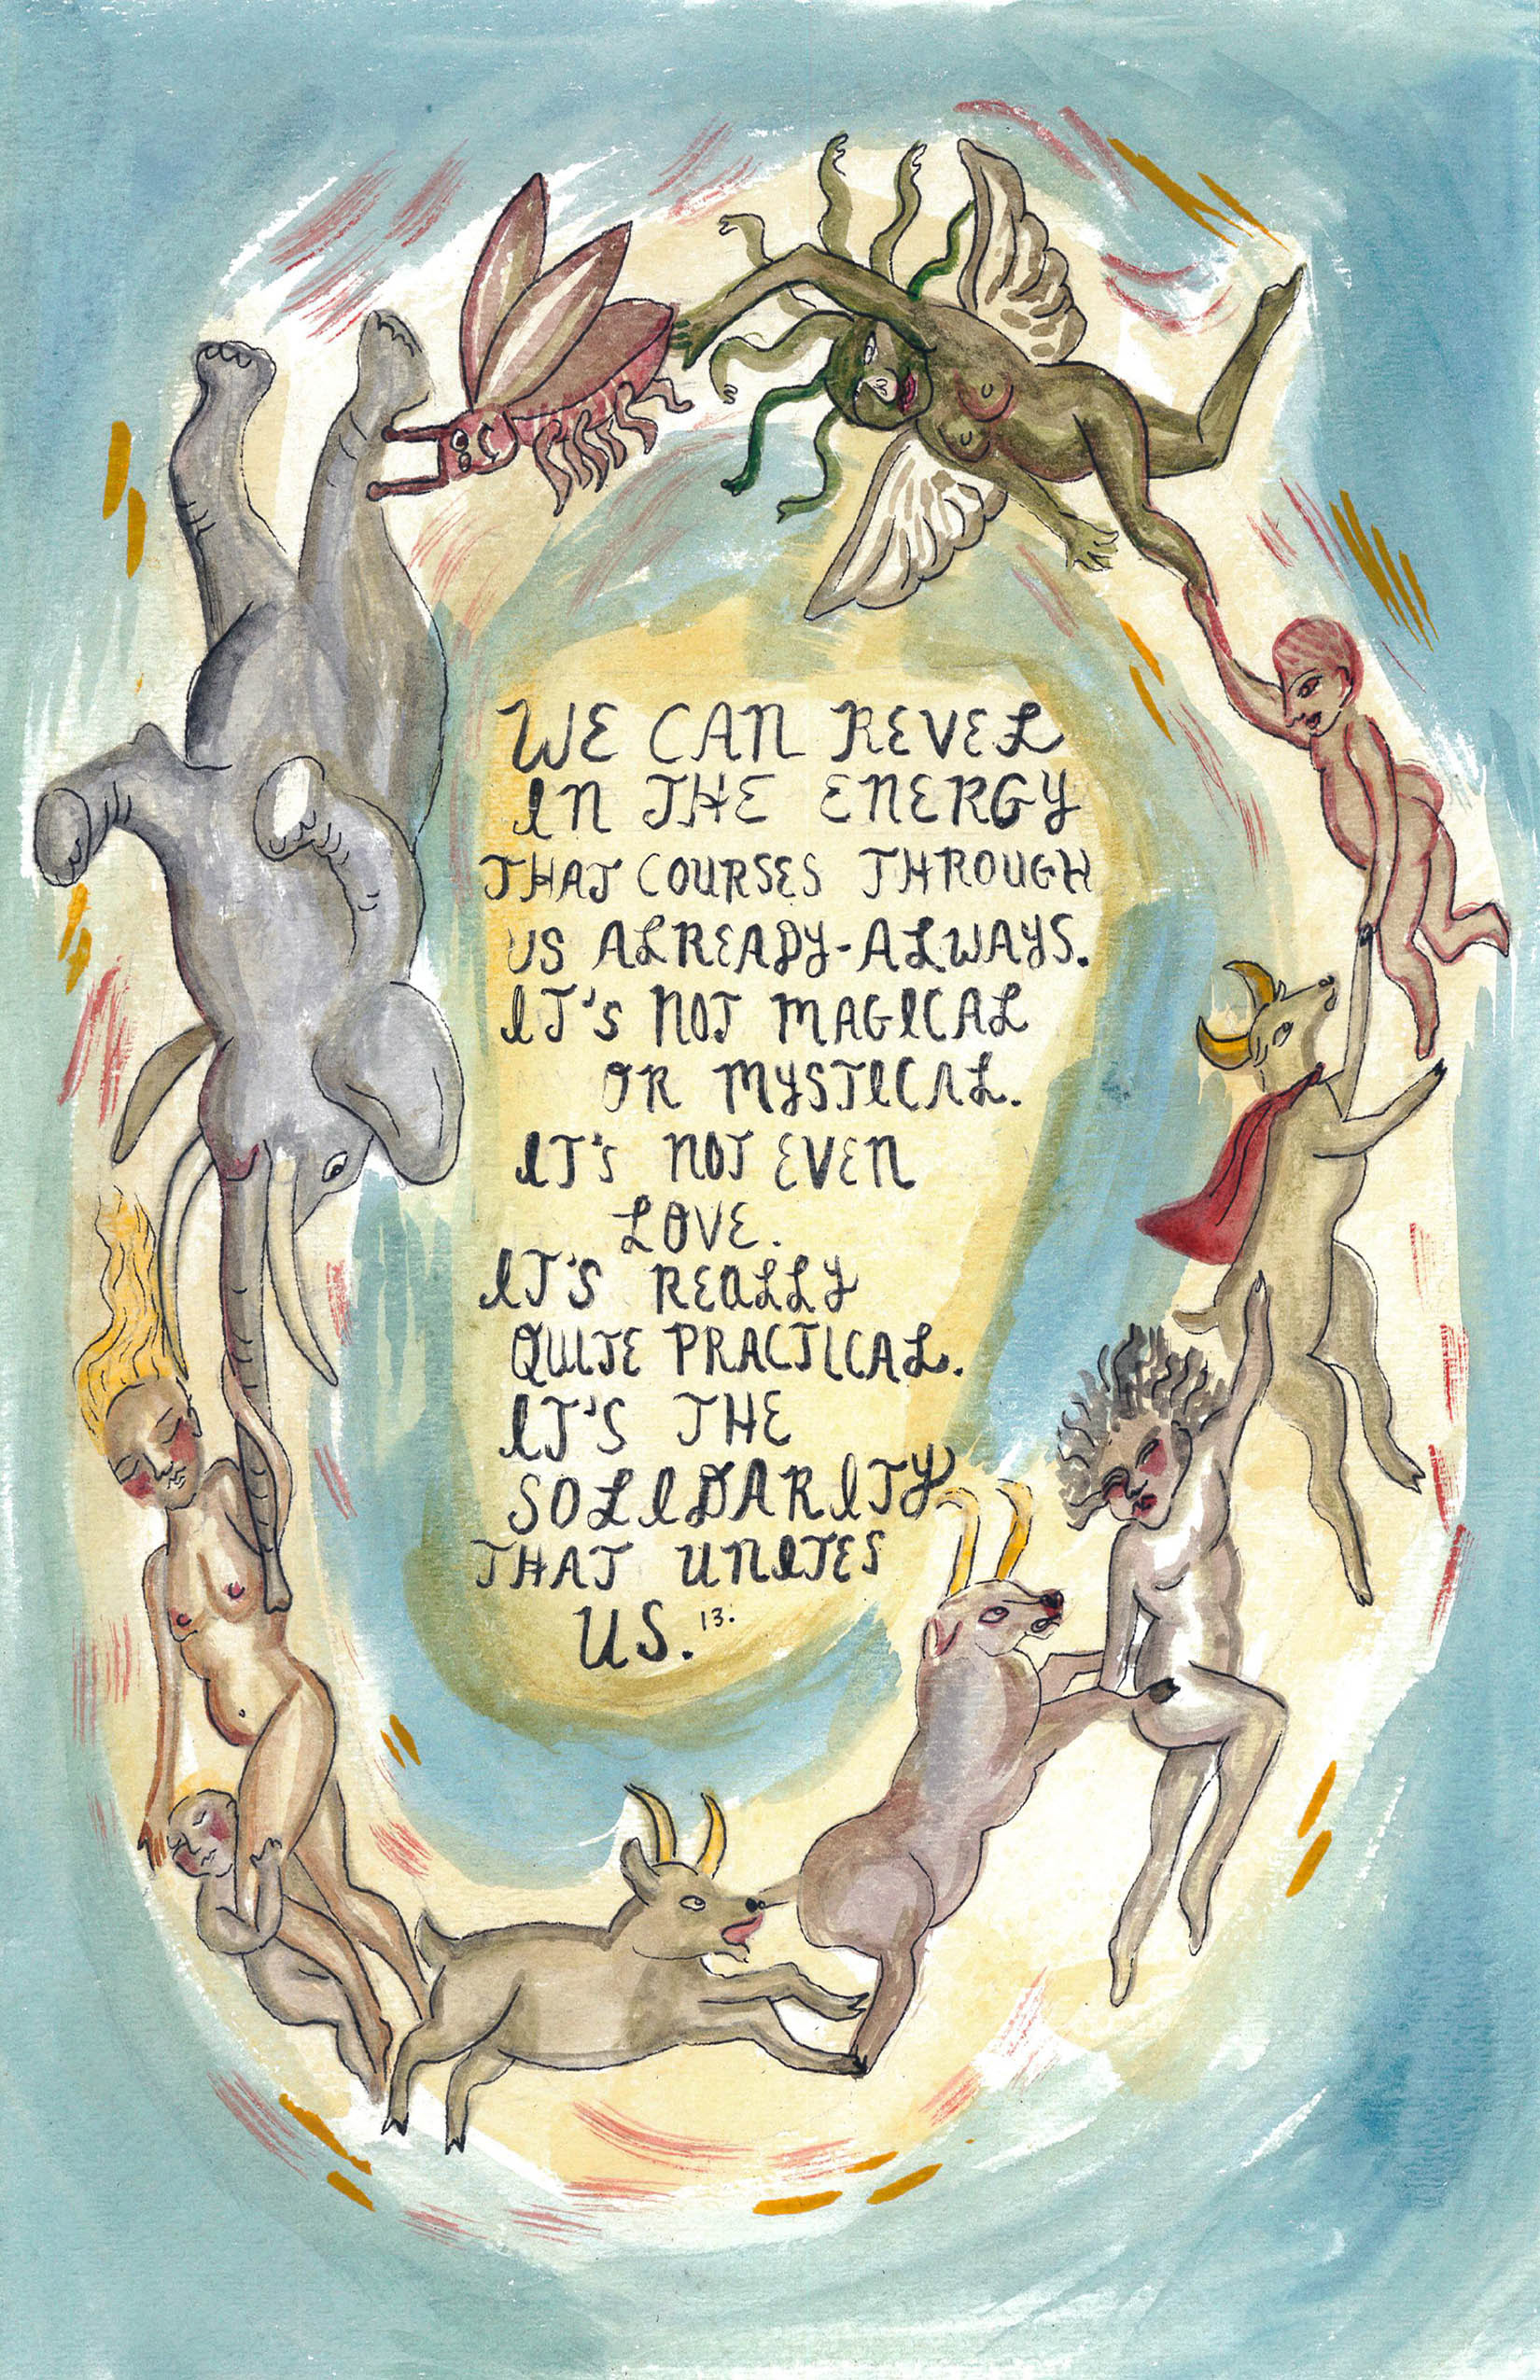 WE CAN REVEL
IN THE ENERGY
THAT COURSES THROUGH
US ALREADY-ALWAYS.
IT'S NOT MAGICAL
OR MYSTICAL.
IT'S NOT EVEN
LOVE.
IT'S REALLY
QUITE PRACTICAL.
IT'S THE
SOLIDARITY
THAT UNITES
US. 13.